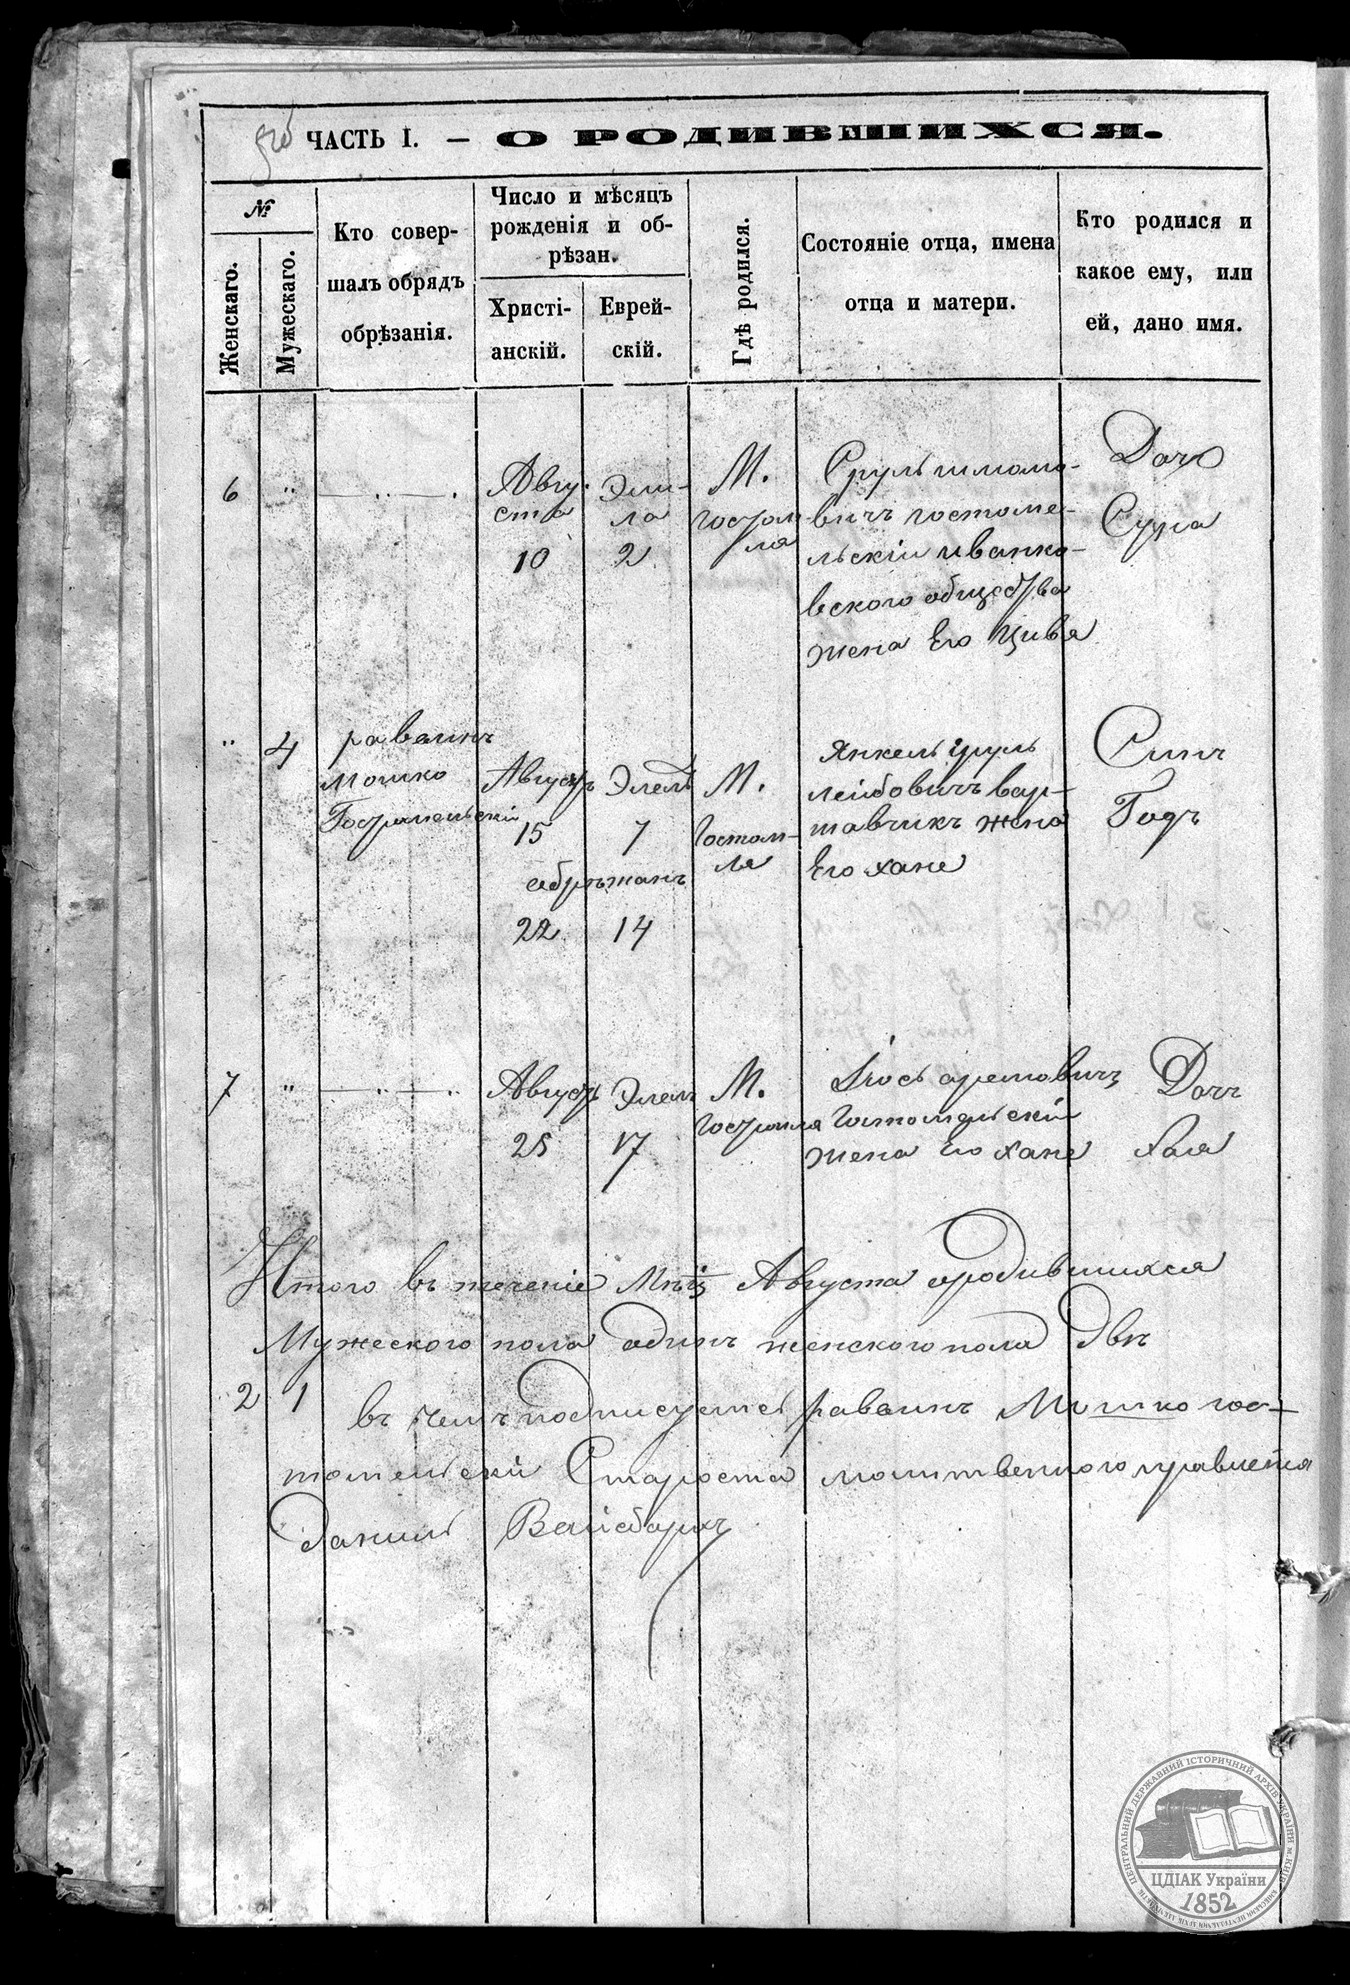 ЧАСТЬ I. — О РОДИВШИХСЯ.
№
Женскаго.
Мужескаго.
Кто совер-
шалъ обрядъ
обрѣзанія.
Число и мѣсяцъ
рожденія и об-
рѣзан.
Христі-
анскій.
Еврей-
скій.
Гдѣ родился.
Состояніе отца, имена
отца и матери.
Кто родился и
какое ему, или
ей, дано имя.
6
"
Авгу-
ста
10
Эли-
ла
2
М.
Гостом-
ля
Сруль шмомо-
вичъ гостоме-
льскій иванко-
вского общества
жена Его Цивя
Дочь
Сура
"
4
равинъ
Мошко
Гостомельскій
Августъ
15
Элелъ
7
обрѣжанъ
22
14
М.
Гостом-
ля
Янкель Сруль
лейбовичъ вар-
шавчикъ жена
Его хане
Сынъ
Годъ
7
"
Августъ
25
Элелъ
17
М.
Гостомля
Іось
Гостомельскій
жена Его хане
Дочь
хая
Итого въ теченіе Мѣц Августа ородившихся
Мужеского пола одинъ женского пола двѣ
2 1
въ чемъ подписуется равинъ Мошко гос-
томельскій Староста молитвенного правленія
Данилъ
ЦЕНТРАЛЬНИЙ ДЕРЖАВНИЙ ІСТОРИЧНИЙ АРХІВ УКРАЇНИ М.КИЇВ
ЦДІАК України
1852